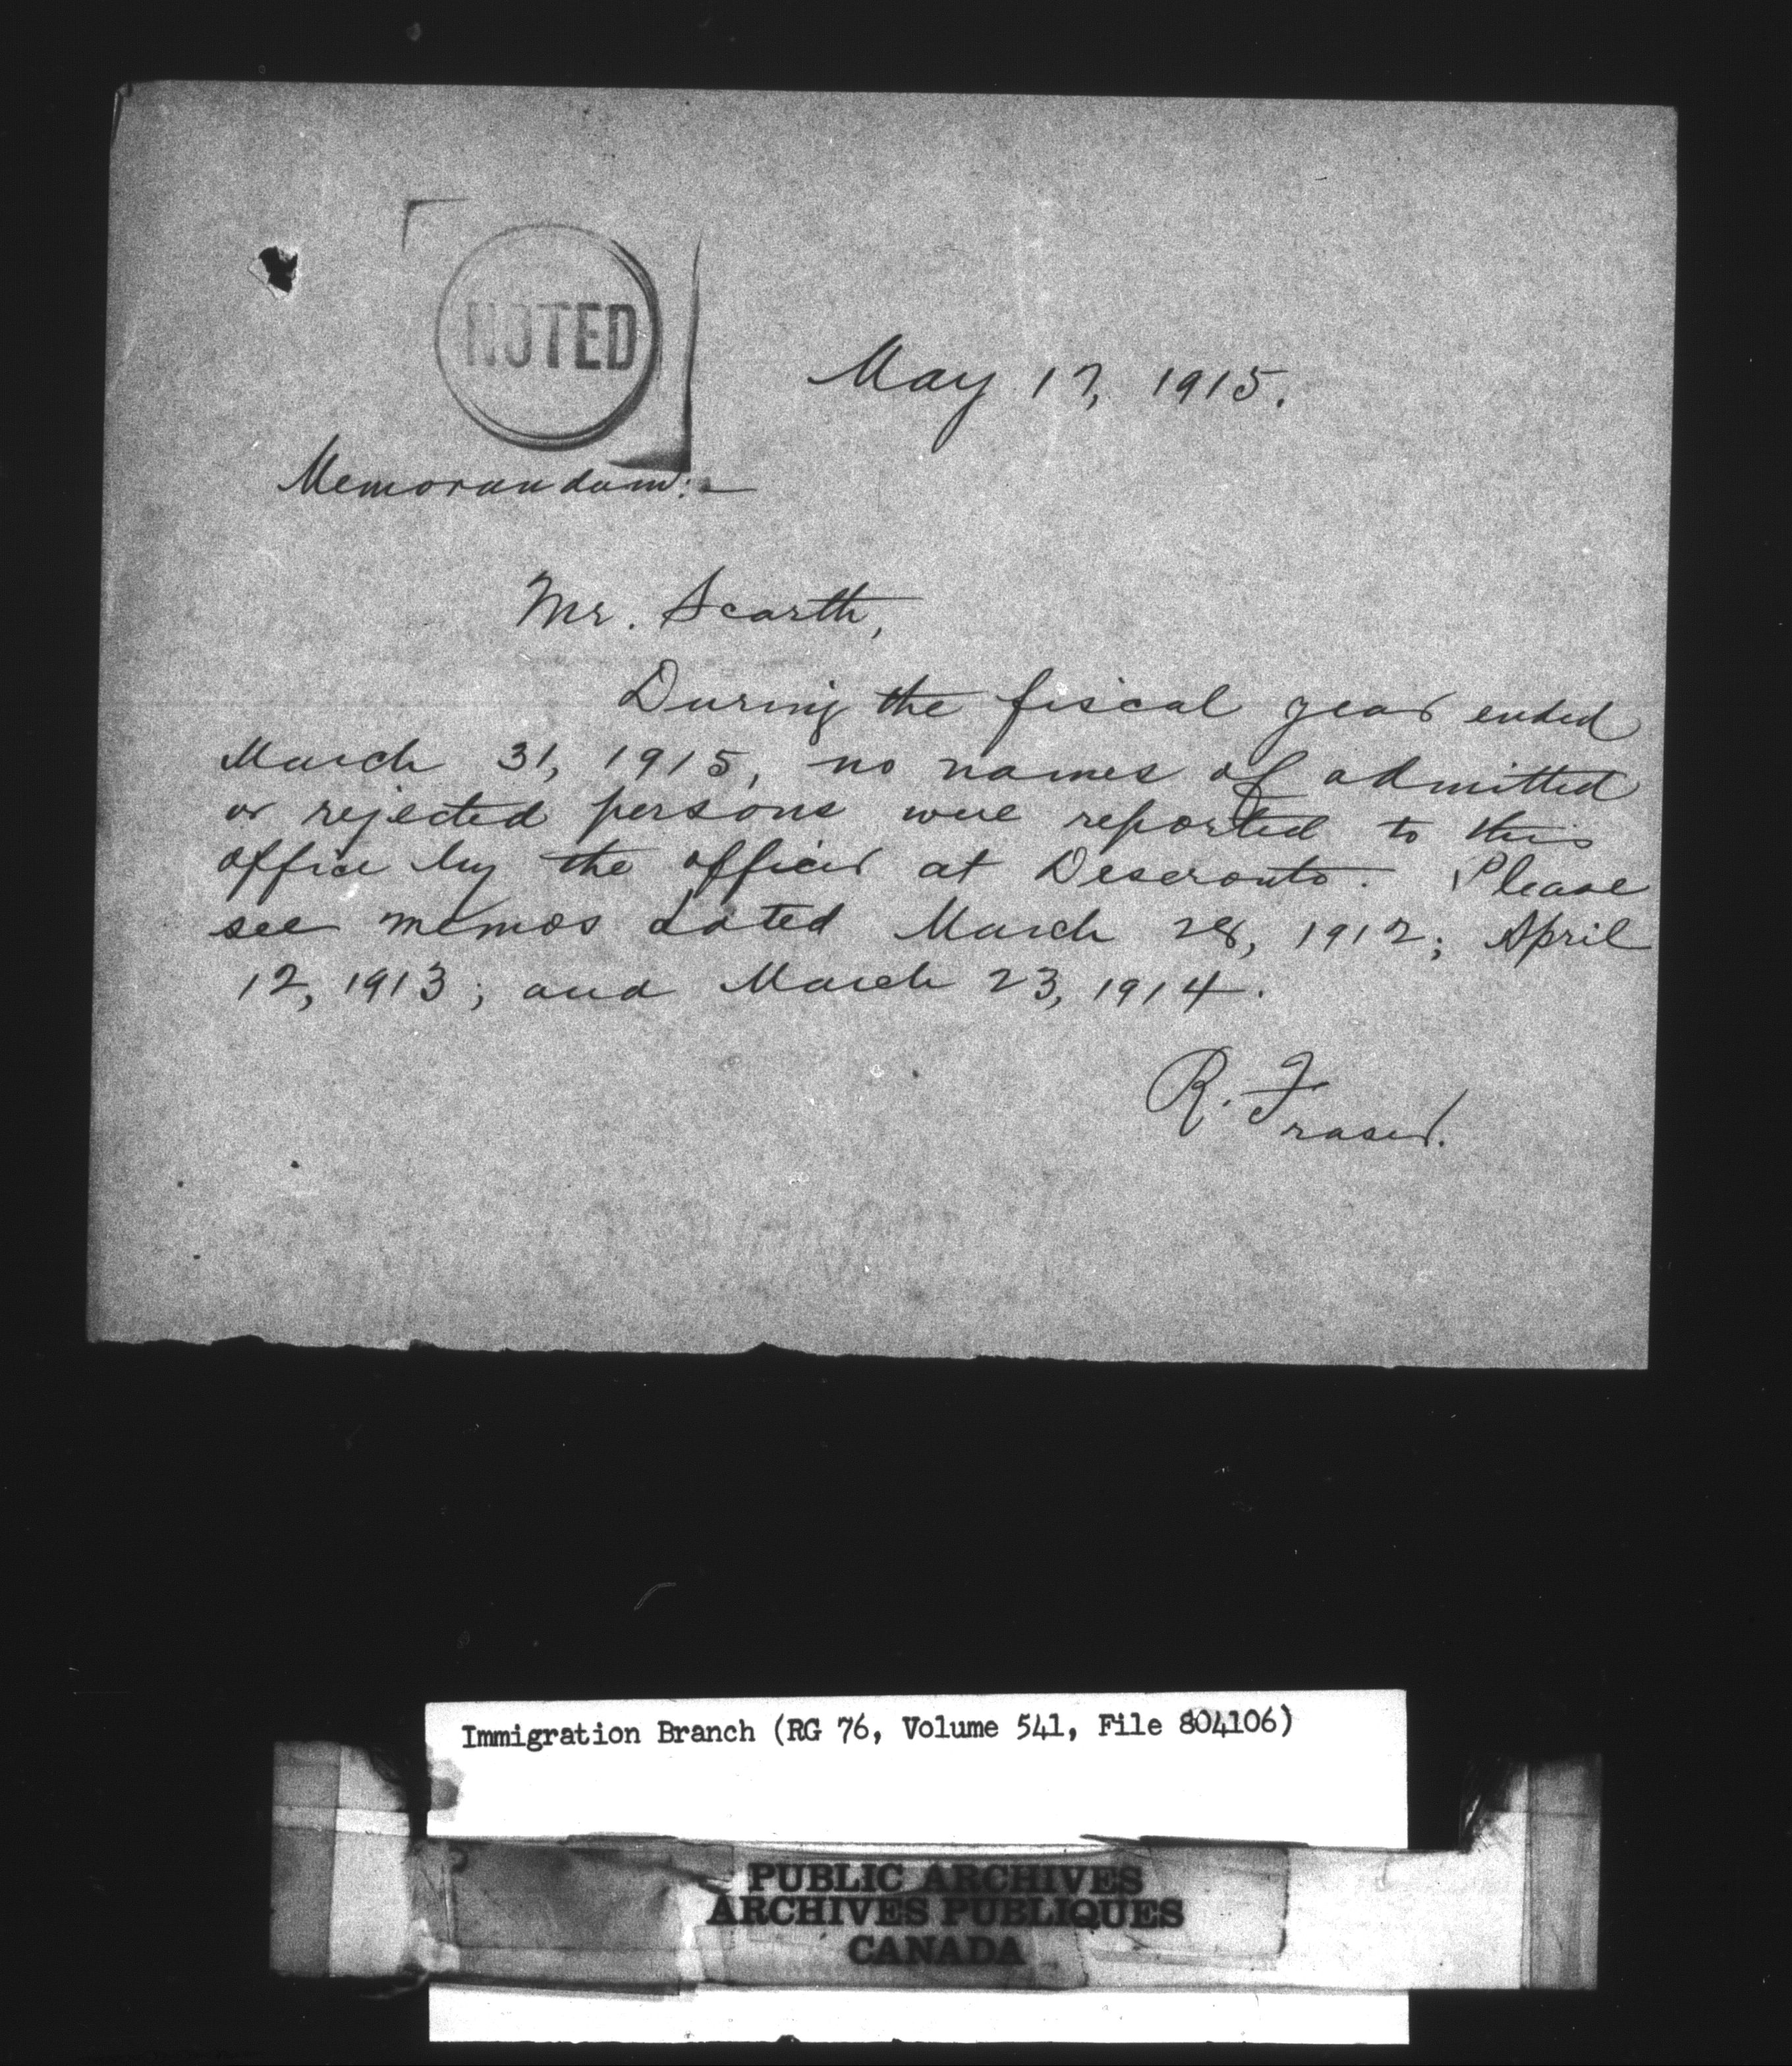 NOTED
May 17, 1915.
Memorandum:-
Mr. Scarth,
During the fiscal year ended
March 31, 1915, no names of admitted
or rejected persons were reported to this
office by the officer at Deseronto. Please
see memos dated March 28, 1912; April
12, 1913; and March 23, 1914.
R. Fraser.
Immigration Branch (RG 76, Volume 541, File 804106)
PUBLIC ARCHIVES
ARCHIVES PUBLIQUES
CANADA